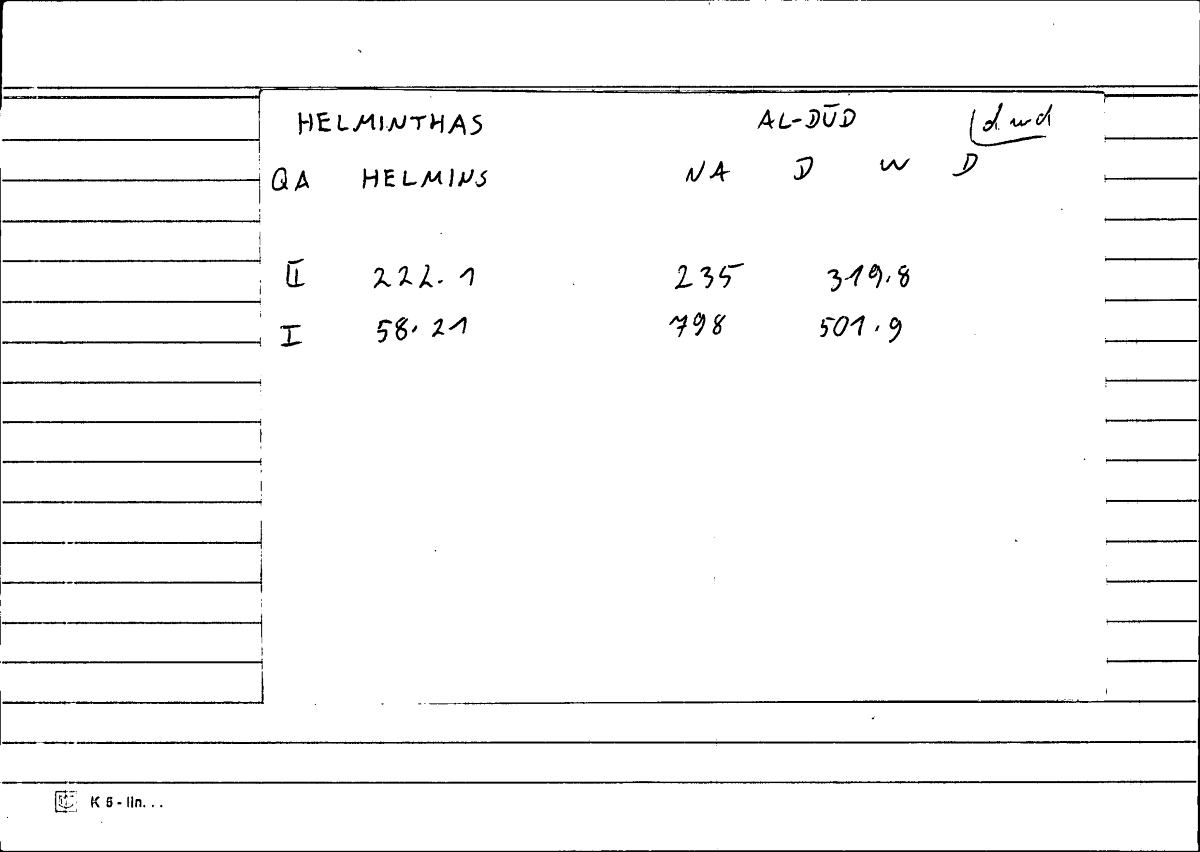 HELMINTHAS AL-DŪD dwd
QA HELMINS NA D W D
II 222.1 235 319.8
I 58.21 798 501.9
K 5 - lin. . .